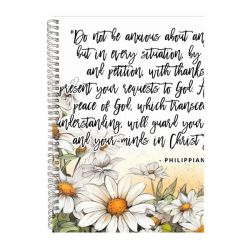 "Do not be anxious about an
but in every situation, by
and petition, with thanks
present your requests to God. A
peace of God, which transce
understanding, will guard your
and your minds in Christ
- PHILIPPIAN